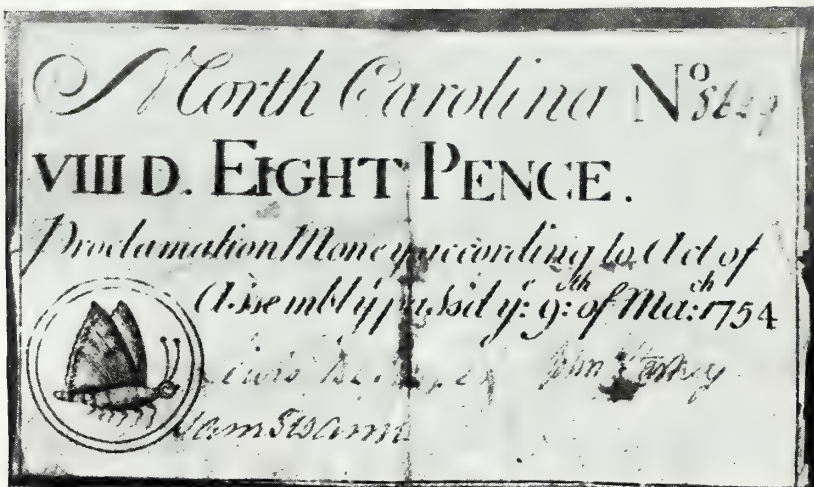 North Carolina No
VIII D. EIGHT PENCE.
Proclamation Money according to Act of
Assembly passed ye. 9:th of Ma:ch 1754
Lewis John Starkey
Sam Swann